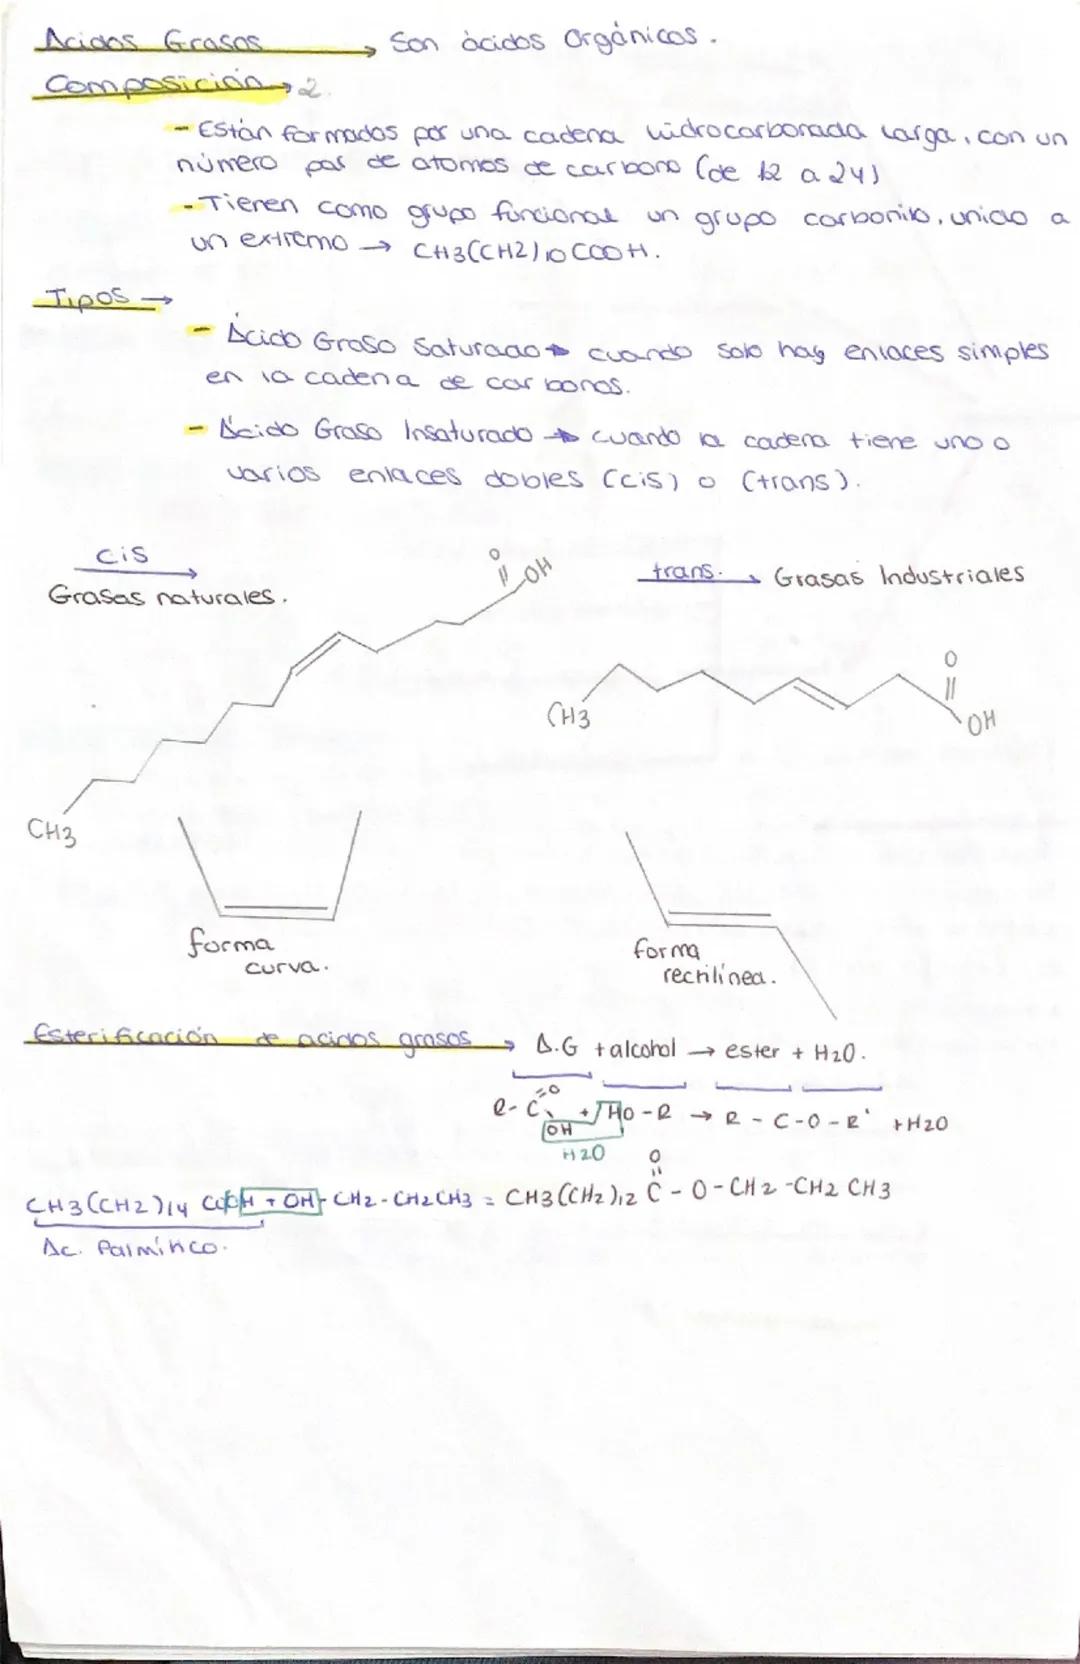 Ácidos Grasos → Son ácidos Orgánicos.
Composición → 2.
- Están formados por una cadena hidrocarbonada larga, con un
número par de átomos de carbono (de 12 a 24)
- Tienen como grupo funcional un grupo carbonilo, unido a
un extremo → CH3(CH2)10COOH.
Tipos →
- Ácido Graso Saturado → cuando solo hay enlaces simples
en la cadena de carbonos.
- Ácido Graso Insaturado → cuando la cadena tiene uno o
varios enlaces dobles (cis) o (trans).
cis →
Grasas naturales.
O
OH
CH3
trans. → Grasas Industriales
O
OH
CH3
forma
curva.
forma
rectilínea.
Esterificación de ácidos grasos → Á.G + alcohol → ester + H2O.
R-C =O OH + HO-R → R-C-O-R' + H2O
H2O
O
CH3(CH2)14 COOH + OH-CH2-CH2CH3 = CH3(CH2)12 C-O-CH2-CH2 CH3
Ác. Palmítico.